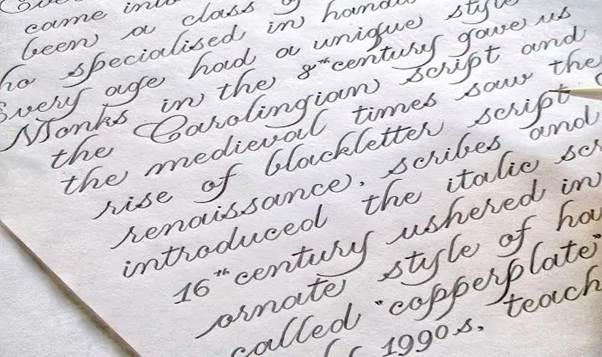 came int
been a class
ho specialised in hand
Every age had a unique style
Monks in the 8th century gave us
the Carolingian script and
the medieval times saw the
rise of blackletter script
renaissance, scribes and
introduced the italic sc
16th century ushered in
ornate style of ha
called "copperplate"
1990s, teach